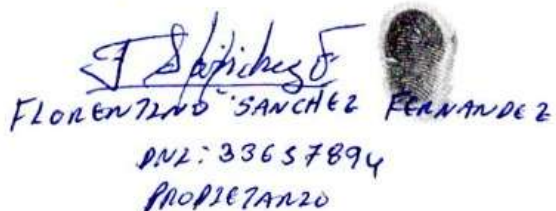 F Sánchez F
FLORENTINO SANCHEZ FERNANDEZ
DNI: 33657894
PROPIETARIO